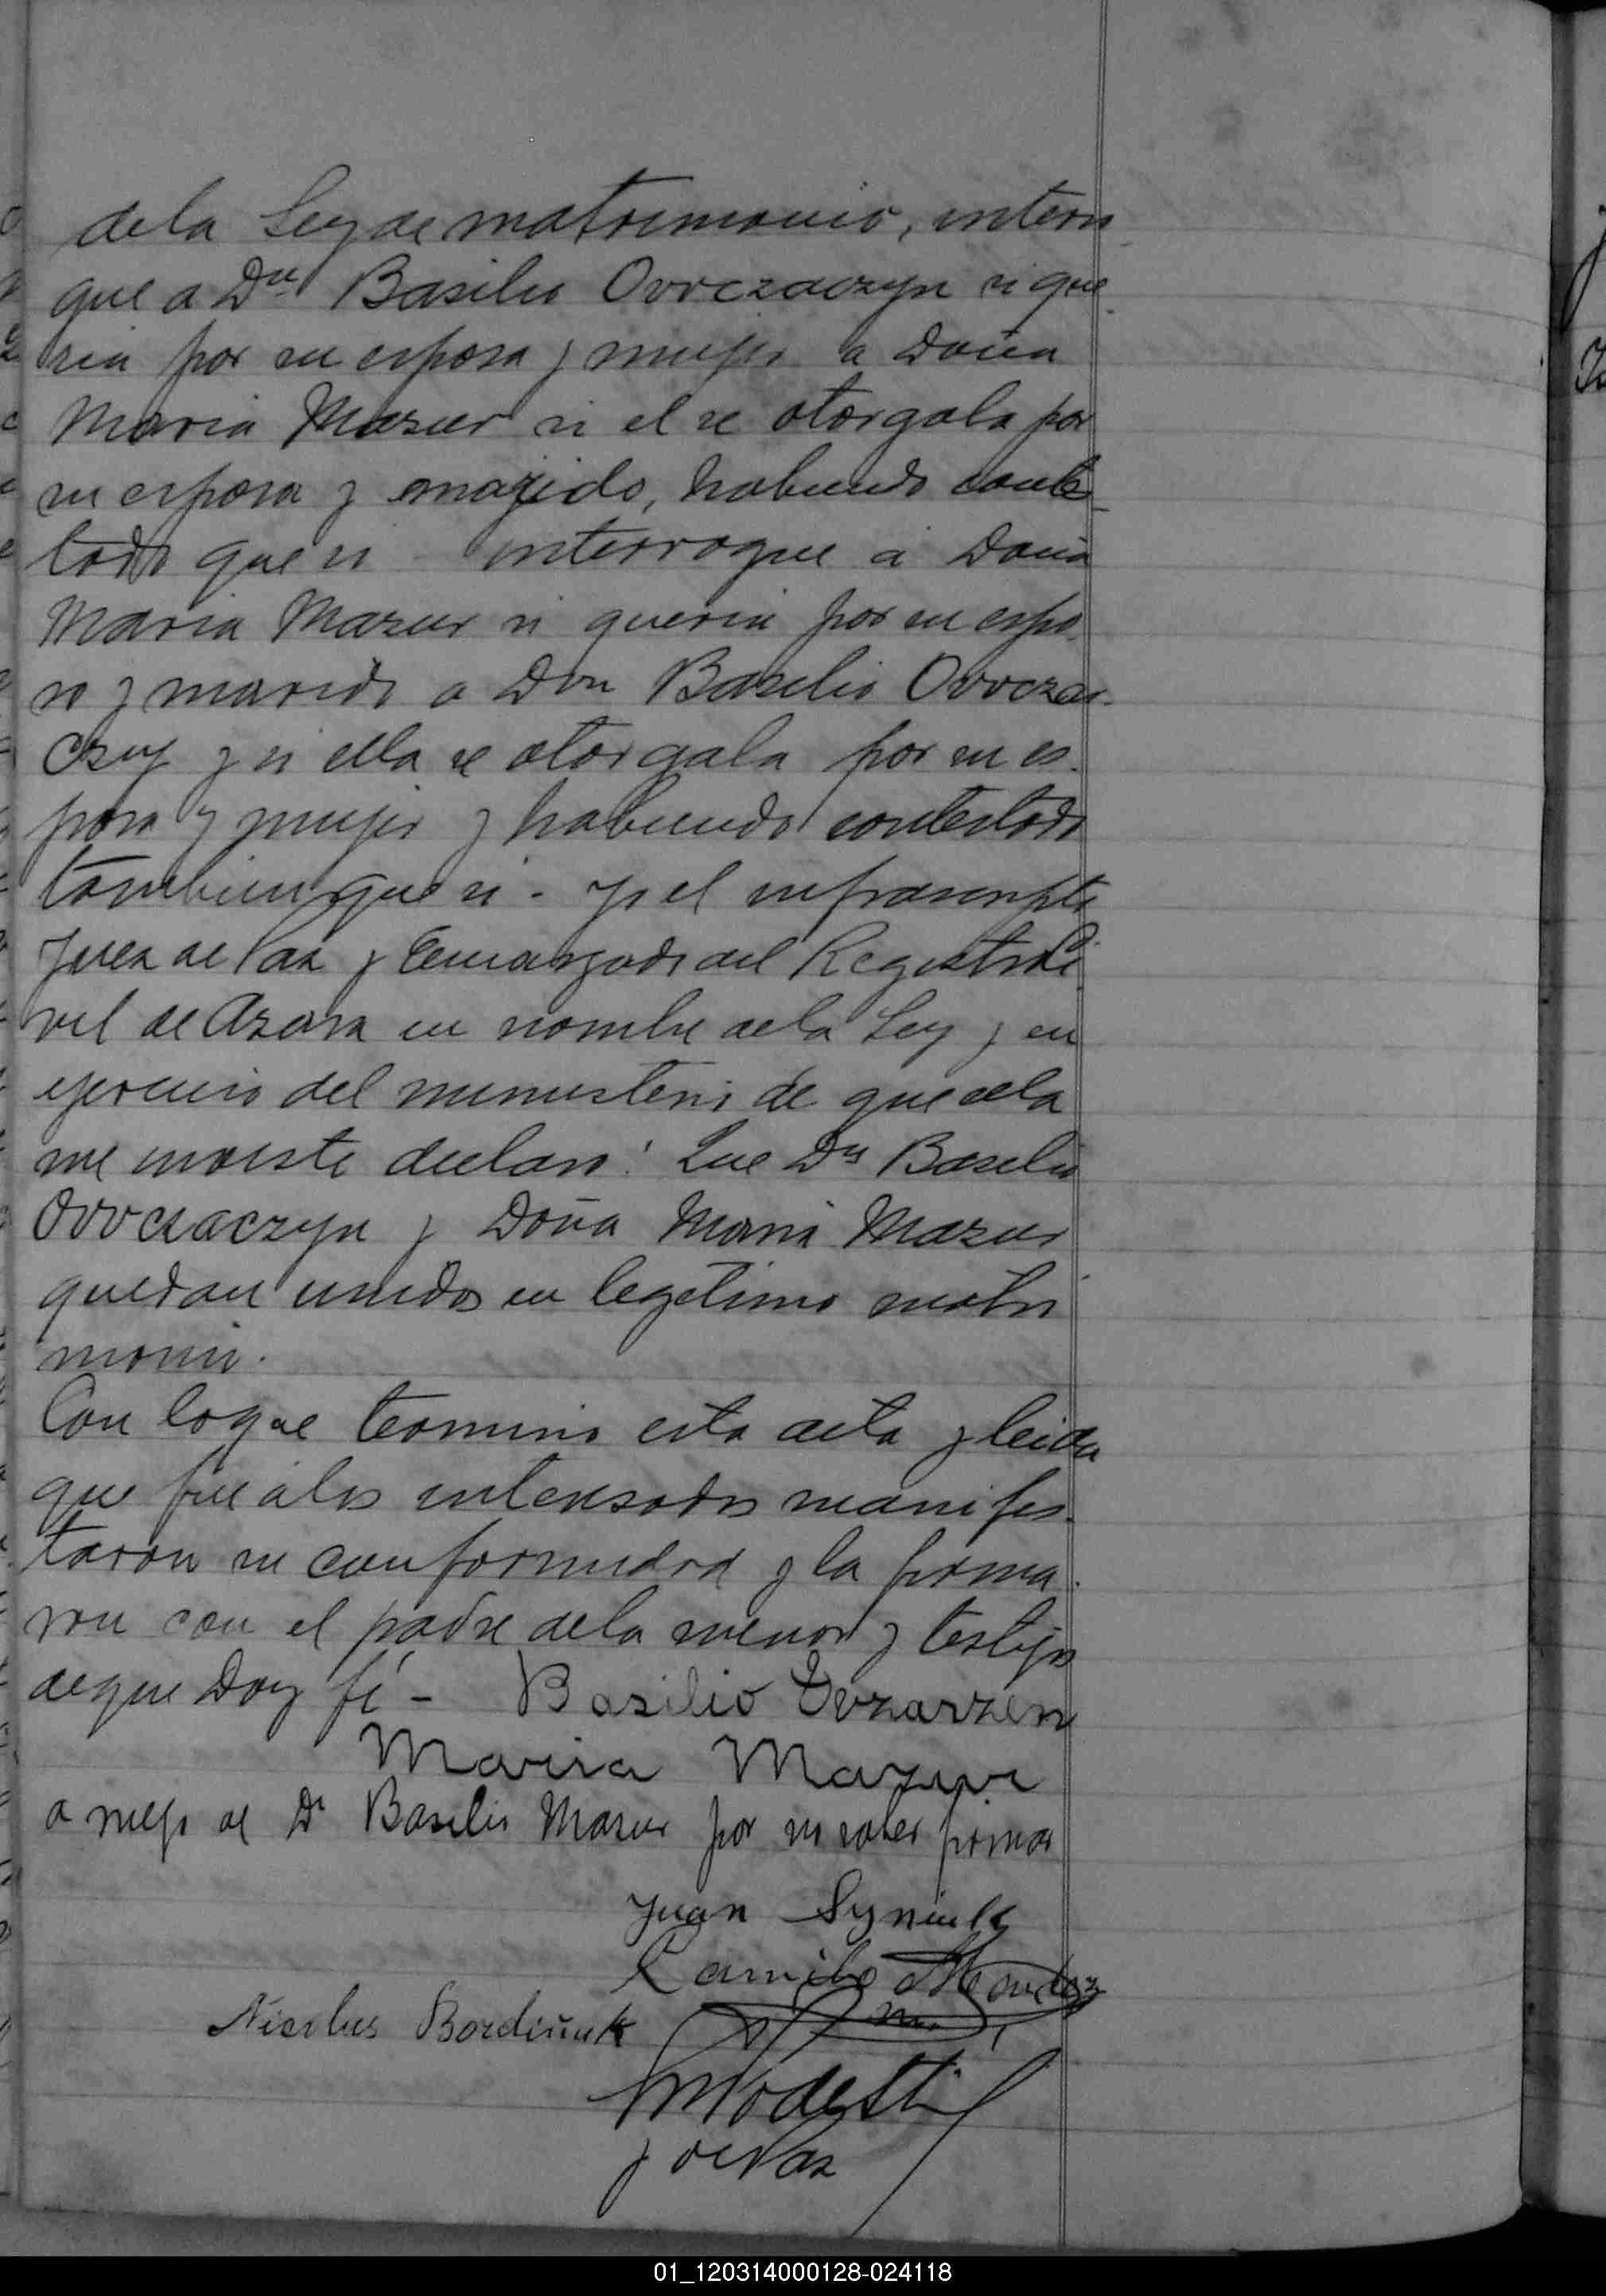 dela Ley de matrimonio, interro
gue a Dn Basilio Ovvczaczyn si que
ria por su esposa y mujer a Doña
Maria Mazur si el se otorgala por
su esposa y marido, habiendo contes
tado que si - interrogue a Doña
Maria Mazur si queria por su espo
so y marido a Don Basilio Ovvcza-
czy y si ella se otorgala por su es-
posa y mujer y habiendo contestado
tambien que si - yo el infrascripto
Juez de Paz y Encargado del Registro Ci
vil de Azara en nombre dela Ley y en
ejercicio del ministerio de que ella
me inviste declaro: Que Dn Basilio
Ovvczaczyn y Doña Maria Mazur
quedan unidos en legitimo matri
monio.
Con loque termino esta acta y leida
que fue alos interesados manifes-
taron su conformidad y la firma-
ron con el padre dela menor y testigos
deque Doy fé - Basilio
Maria Mazur
a ruego de Dn Basilio Mazur por no saber firmar
Juan
Camilo Mendez
Nicolus Bordiñuk
Modesti
J de Paz
01_120314000128-024118